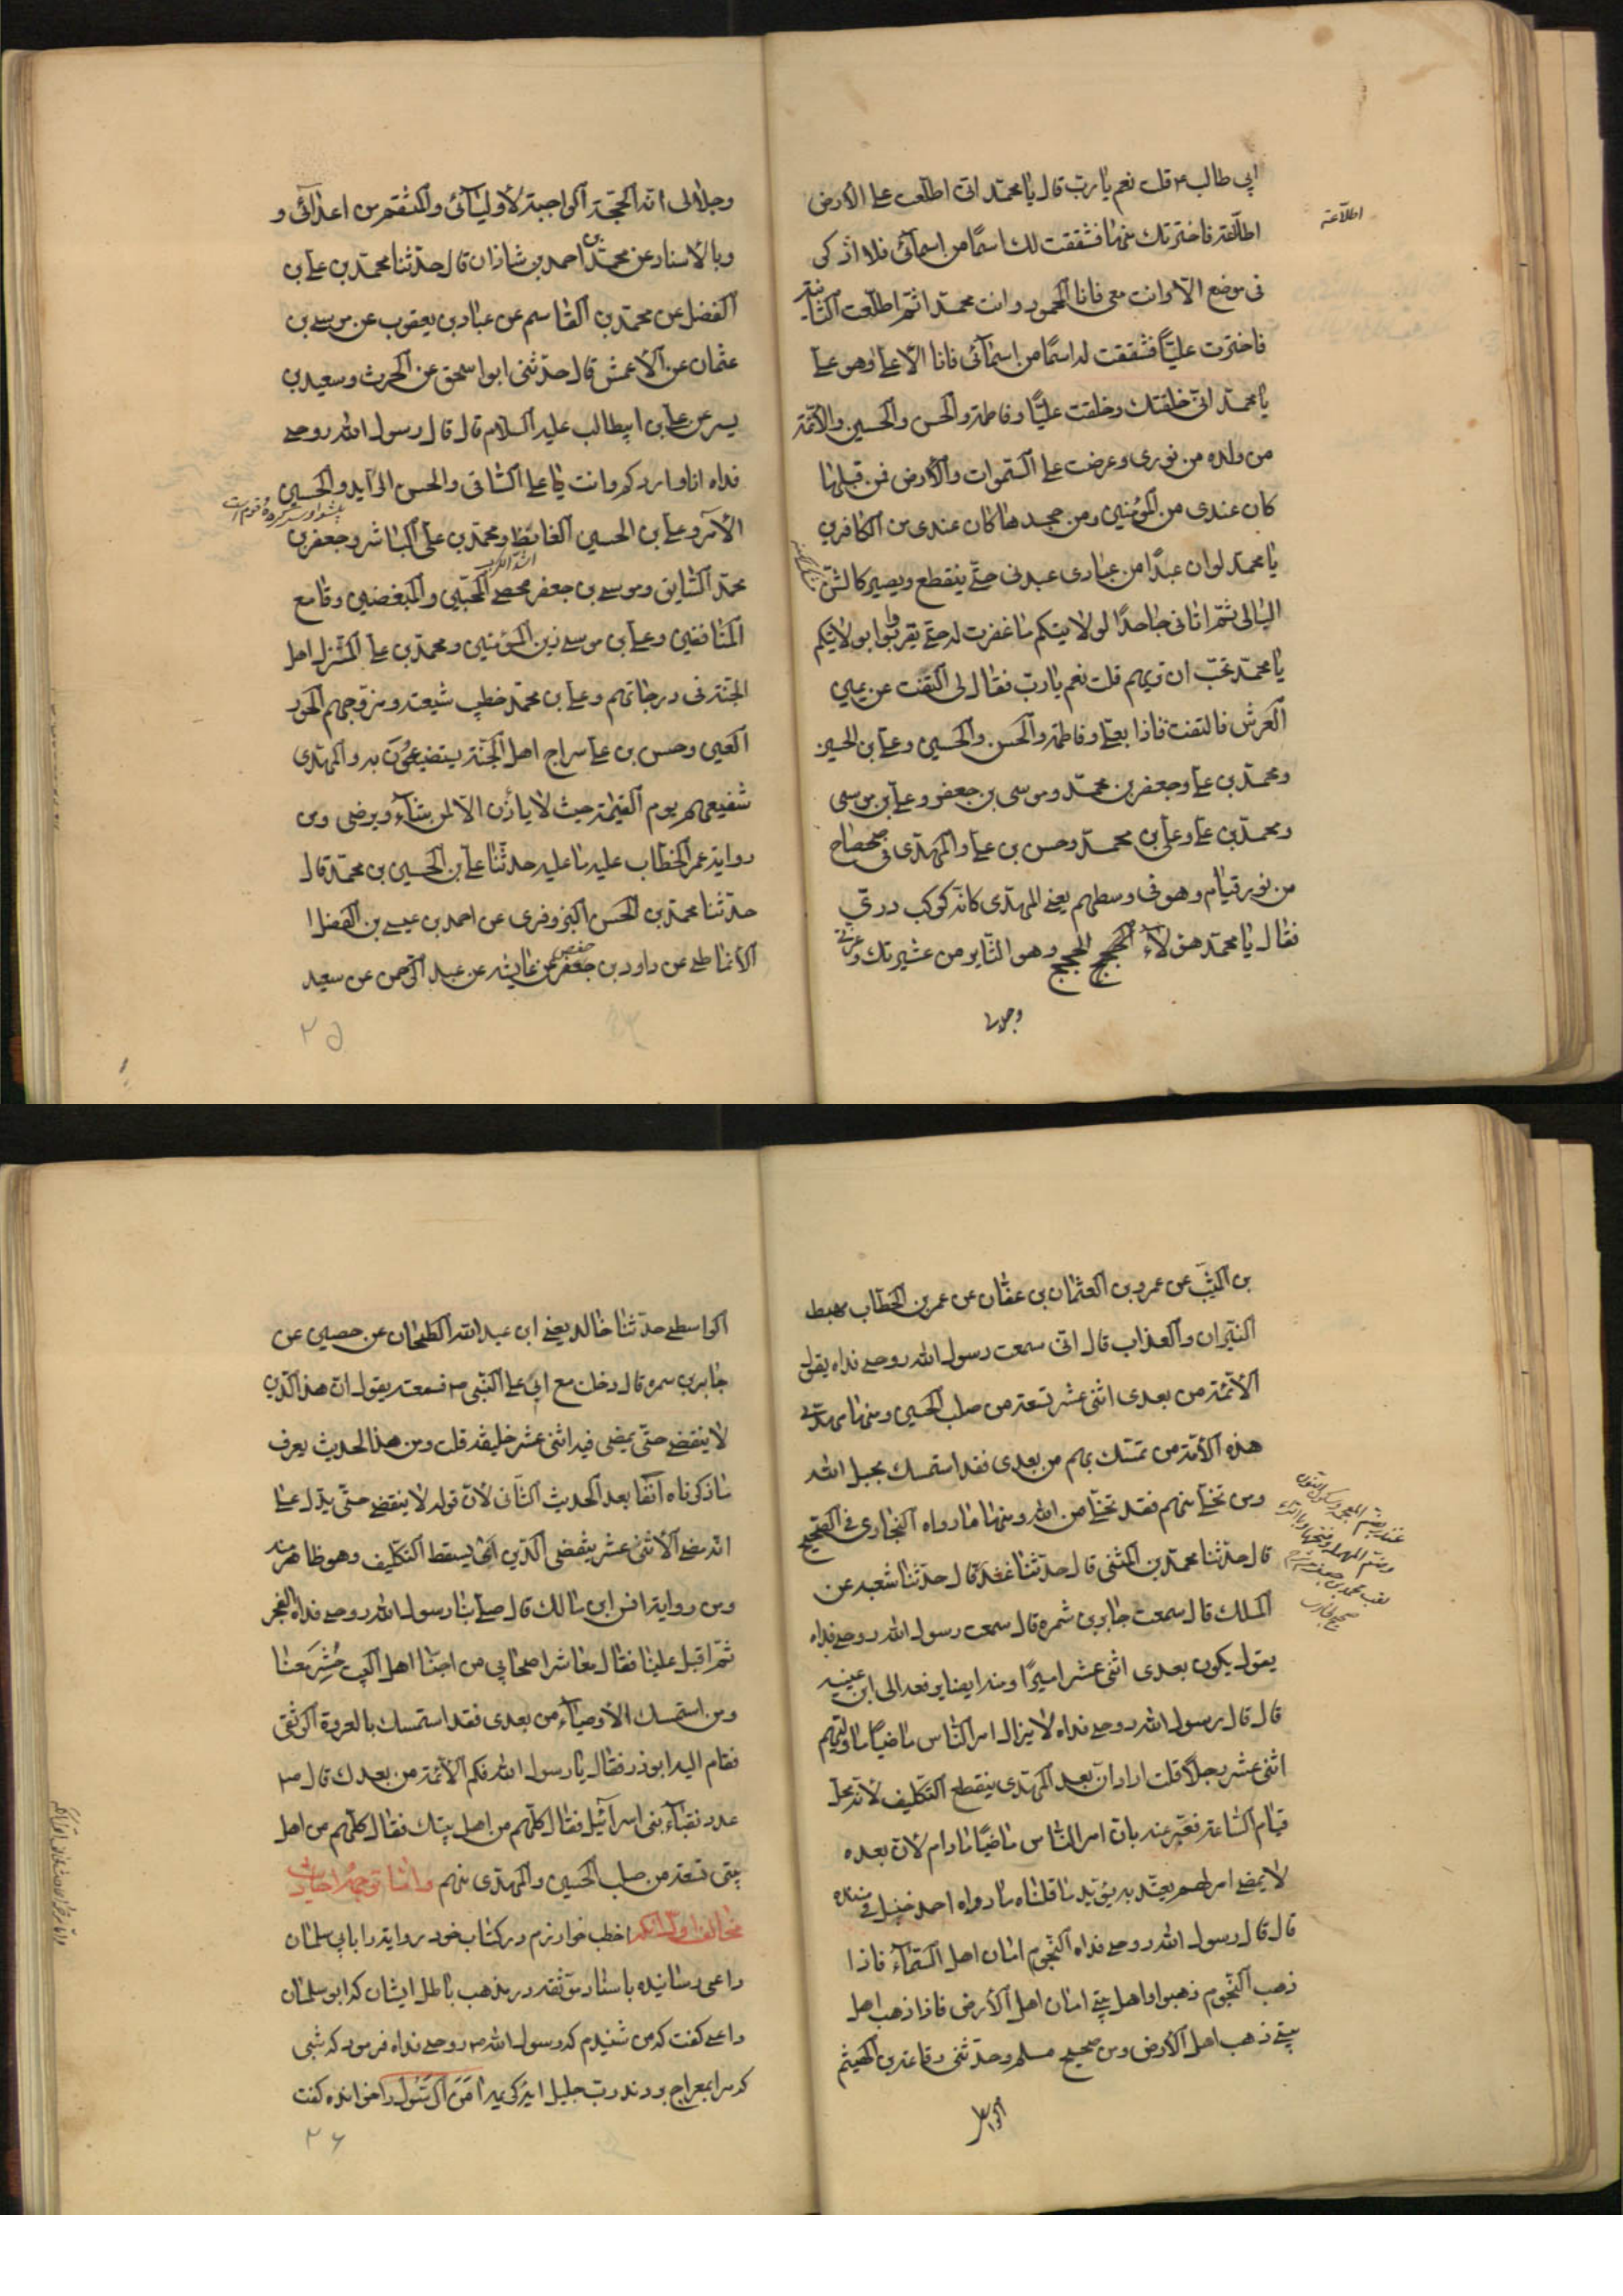 ابي طالب ع قلت نعم يا رب قال يا محمد اني اطلعت على الارض
اطلاعة
اطلاعة فاخترتك منها فشققت لك اسمًا من اسمائي فلا اذكر
في موضع الا وانت معي فانا المحمود وانت محمد ثم اطلعت الثانية
فاخترت عليًا فشققت له اسمًا من اسمائي فانا الاعلى وهو علي
يا محمد اني خلقتك وخلقت عليًا وفاطمة والحسن والحسين والائمة
من ولده من نوري وعرضت على السموات والارض فمن قبلها
كان عندي من المؤمنين ومن جحدها كان عندي من الكافرين
يا محمد لو ان عبدًا من عبادي عبدني حتى ينقطع ويصير كالشن
البالي ثم اتاني جاحدًا لولايتكم ما غفرت له حتى يقروا بولايتكم
يا محمد تحب ان تريهم قلت نعم يا رب فقال لي التفت عن يمين
العرش فالتفت فاذا بعلي وفاطمة والحسن والحسين وعلي بن الحسين
ومحمد بن علي وجعفر بن محمد وموسى بن جعفر وعلي بن موسى
ومحمد بن علي وعلي بن محمد وحسن بن علي والمهدي في ضحضاح
من نور قيام وهو في وسطهم يعني المهدي كانه كوكب دري
فقال يا محمد هؤلاء الحجج وهو الثاير من عشيرتك وعزتي
وجلالي
وجلالي انه الحجة الواجبة لاوليائي والمنتقم من اعدائي و
وبالاسناد عن محمد بن احمد بن شاذان قال حدثنا محمد بن علي بن
الفضل عن محمد بن القاسم عن عباد بن يعقوب عن موسى بن
عثمان عن الاعمش قال حدثني ابو اسحق عن الحرث وسعيد بن
يسر عن علي بن ابيطالب عليه السلام قال قال رسول الله روحي
فداه انا واردكم وانت يا علي الساقي والحسن الرايد والحسين
پيشوا و سركرده قوم است
الآمر وعلي بن الحسين الفارط ومحمد بن علي الناشر وجعفر بن
محمد السايق وموسى بن جعفر محصي المحبين والمبغضين وقامع
المنافقين وعلي بن موسى زين المؤمنين ومحمد بن علي المنزل اهل
الجنة في درجاتهم وعلي بن محمد خطيب شيعته ومزوجهم الحور
العين وحسن بن علي سراج اهل الجنة يستضيئون به والمهدي
شفيعهم يوم القيمة حيث لا يأذن الا لمن يشاء ويرضى ومن
رواية عمر الخطاب عليه ما عليه حدثنا علي بن الحسين بن محمد قال
حدثنا محمد بن الحسن البزوفري عن احمد بن عيسى بن الفضل ا
الانماطي عن داود بن جعفر عن عبد الرحمن عن سعيد
حفص
٢٥
بن المسيب عن عمرو بن العثمان بن عفان عن عمر بن الخطاب مهبط
النيران والعذاب قال اني سمعت رسول الله روحي فداه يقول
الائمة من بعدي اثنى عشر تسعة من صلب الحسين ومنها مهدي
هذه الامة من تمسك بهم من بعدي فقد استمسك بحبل الله
ومن تخلى منهم فقد تخلى من الله ومنها ما رواه البخاري في الصحيح
قال حدثنا محمد بن المثنى قال حدثنا غندر قال حدثنا شعبه عن
الملك قال سمعت جابر بن سمره قال سمعت رسول الله روحي فداه
يقول يكون بعدي اثنى عشر اميرًا ومنه ايضا يرفعه الى ابن عيينه
قال قال رسول الله روحي فداه لا يزال امر الناس ماضيًا ما وليهم
اثنى عشر رجلًا قلت اراد ان بعد المهدي ينقطع التكليف لانه محل
قيام الساعة فعبر عنه بان امر الناس ماضيًا ما دام لان بعده
لا يمضي امر لهم يعتد به يؤيد ما قلناه ما رواه احمد حنبل في مسنده
قال قال رسول الله روحي فداه النجوم امان اهل السماء فاذا
ذهب النجوم ذهبوا واهل بيتي امان اهل الارض فاذا ذهب اهل
بيتي ذهب اهل الارض ومن صحيح مسلم وحدثني رفاعة بن الهيثم
الواسطي
الواسطي حدثنا خالد يعني ابن عبد الله الطحان عن حصين عن
جابر بن سمره قال دخلت مع ابي على النبي ص فسمعته يقول ان هذا الدين
لا ينقضي حتى يمضي فيه اثنى عشر خليفة قلت ومن هذا الحديث يعرف
ما ذكرناه آنفا بعد الحديث الثاني لان قوله لا ينقضي حتى يدل على
انه بمضي الاثنى عشر ينقضي الدين اي يسقط التكليف وهو ظاهر منه
ومن رواية انس ابن مالك قال صلى بنا رسول الله روحي فداه الفجر
ثم اقبل علينا فقال معاشر اصحابي من احبنا اهل البيت حشر معنا
ومن استمسك الاوصياء من بعدي فقد استمسك بالعروة الوثقى
فقام اليه ابوذر فقال يا رسول الله فكم الائمة من بعدك قال ص
عدد نقباء بني اسرائيل فقال كلهم من اهل بيتك فقال كلهم من اهل
بيتي تسعة من صلب الحسين والمهدي منهم واما توجه احاديث
مخالف اول انكه اخطب خوارزم در كتاب خود روايت را بابي سلمان
راعى رسانيده باسناد موثقه در مذهب باطل ايشان كه ابو سلمان
راعى كفت كه من شنيدم كه رسول الله ص روحي فداه فرمود كه شبى
كه مرا بمعراج بردند رب جليل اين كريمه آمن الرسول را خوانده كفت
٢٦